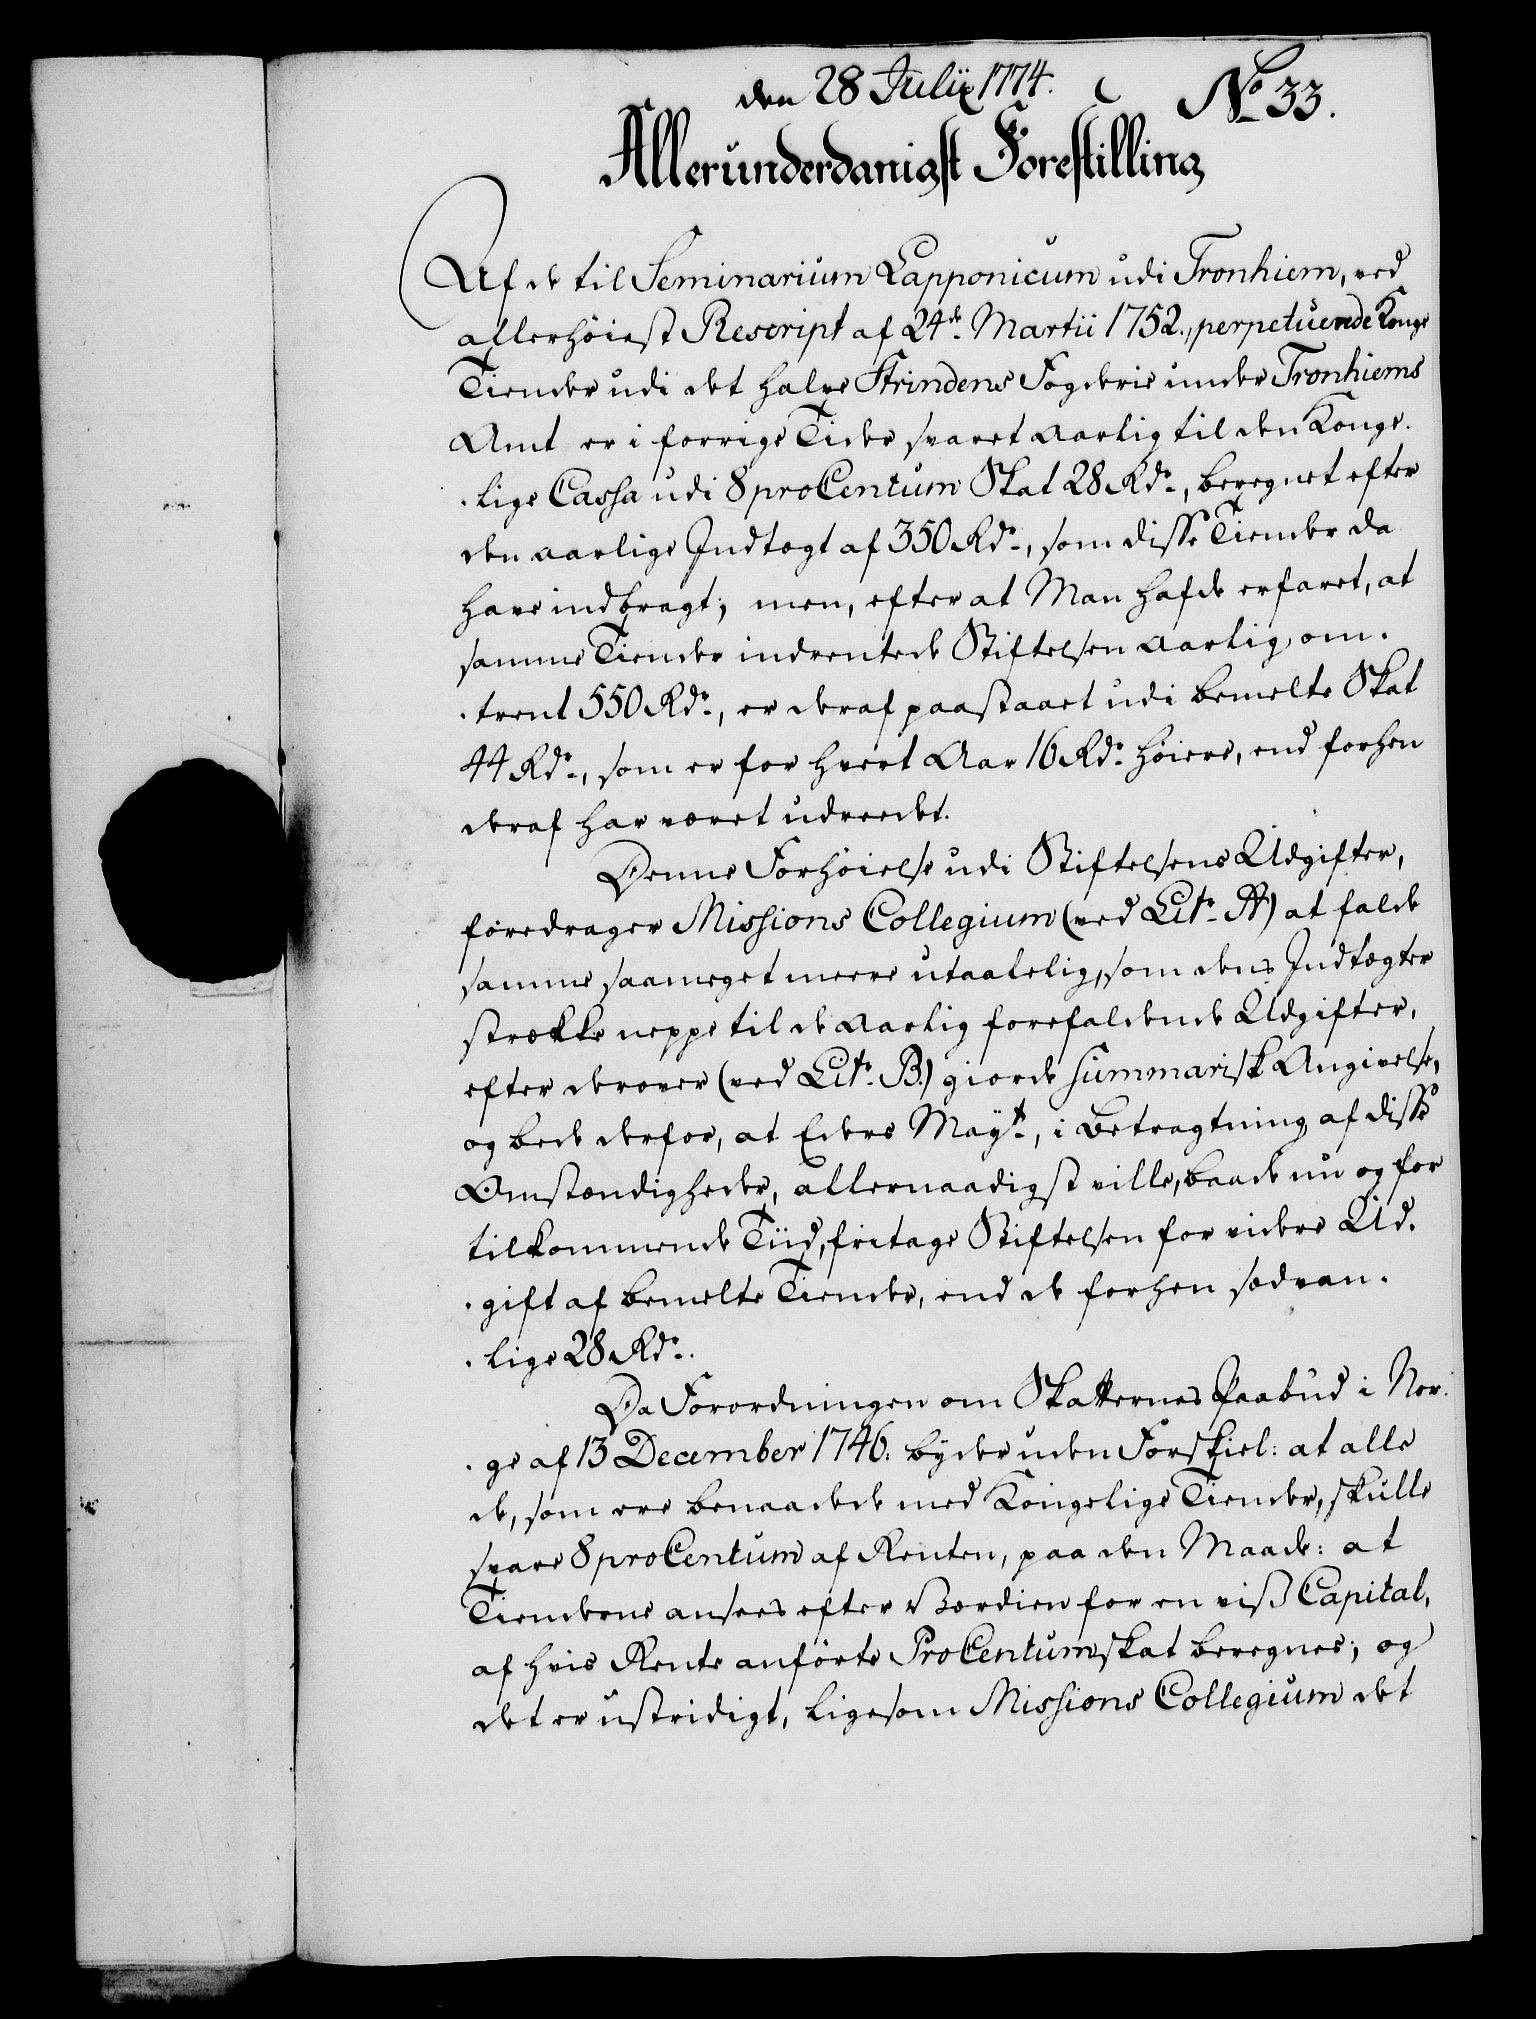 den 28 Julii 1774. No 33.
Allerunderdanigst Forestilling
Af de til Seminarium Lapponicum udi Tronhiem, ved
allerhøiest Rescript af 24de Martii 1752., perpetuerede Konge
Tiender udi det halve Strindens Fogderie under Tronhiems
Amt er i forrige Tider svaret aarlig til den Konge-
-lige Cassa udi 8 proCentum Skat 28 Rdr., beregnet efter
den aarlige Indtægt af 350 Rdr., som disse Tiender da
have indbragt; men, efter at Man hafde erfaret, at
samme Tiender indrentede Stiftelsen aarlig om-
-trent 550 Rdr., er deraf paastaaet udi bemelte Skat
44 Rdr., som er for hvert Aar 16 Rdr. høiere, end forhen
deraf har været udreedt.
Denne Forhøielse udi Stiftelsens Udgifter,
foredrager Missions Collegium (ved Litr. A) at falde
samme saameget meere utaalelig, som dens Indtægter
strække neppe til de aarlig forefaldende Udgifter,
efter derover (ved Litr. B.) giorde summarisk Angivelse,
og bede derfor, at Eders Mayt., i Betragtning af disse
Omstændigheder, allernaadigst ville, baade nu og for
tilkommende Tiid, fritage Stiftelsen for videre Ud-
-gift af bemelte Tiender, end de forhen sædvan-
-lige 28 Rdr.
Da Forordningen om Skatternes Paabud i Nor-
-ge af 13 December 1746. byder uden Forskiel: at alle
de, som ere benaadede med Kongelige Tiender, skulle
svare 8 proCentum af Renten, paa den Maade: at
Tienderne ansees efter Værdien for en viss Capital,
af hvis Rente anførte ProCentumskat beregnes; og
det er ustridigt, ligesom Missions Collegium det